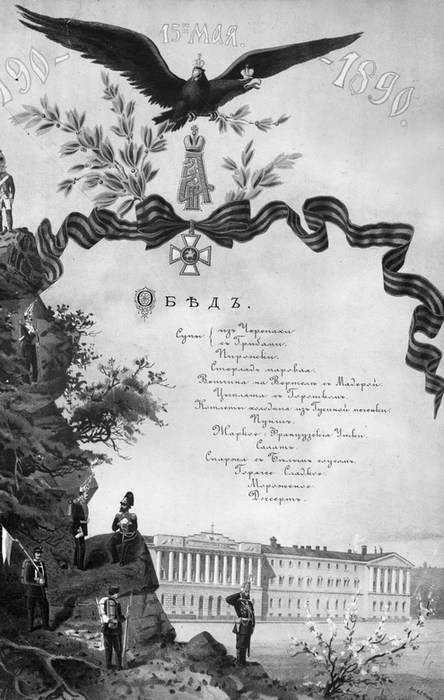 790- 15го МАЯ. -1890.
ОБѢДЪ.
Супы { изъ Черепахи
съ Грибами.
Пирожки.
Стерлядь паровая.
Ветчина на Вертелѣ съ Мадерой.
Цыплята съ Горошкомъ.
Котлеты холодныя изъ Гусиной печенки.
Пуншъ.
Жаркое: Французскія Утки.
Салатъ.
Спаржа съ Бѣлымъ соусомъ.
Горячее Сладкое.
Мороженое.
Дессертъ.